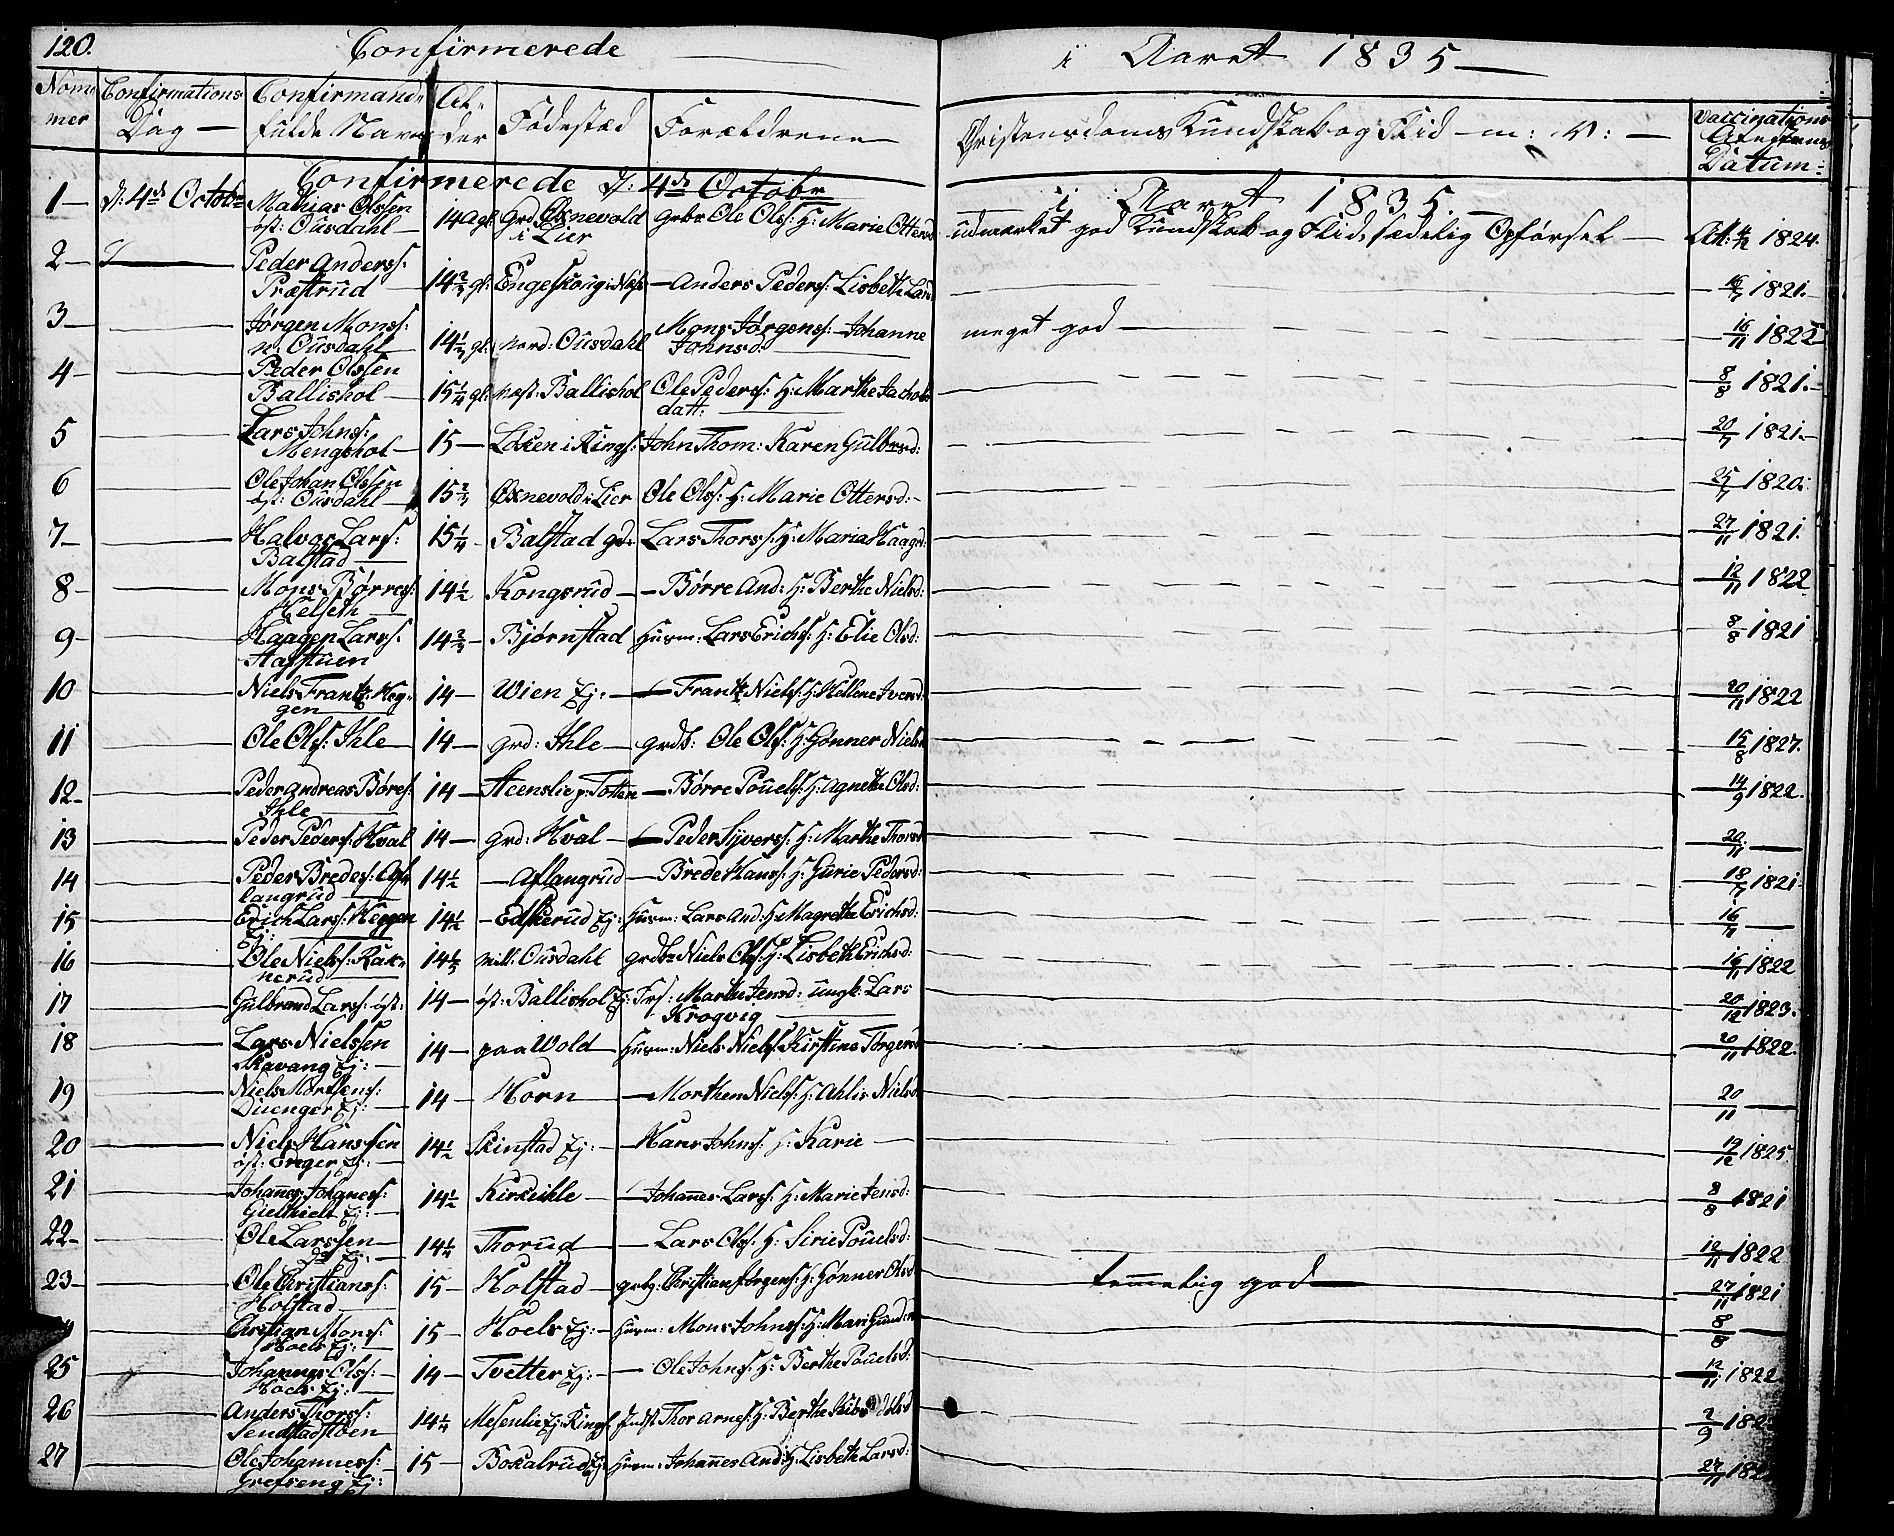 120. Confirmerede i Aaret 1835
Nom- mer Confirmations Dag Confirmand. fulde Navn Al- der Fødested Forældrene Christendoms Kundskab og Flid m: v: Vaccinations Attestens Datum
Confirmerede d: 4de Octobr i Aaret 1835.
1 d: 4de Octobr Mathias Olssen øst: Ousdahl 14 gl: Grd Oxnevold i Lier grbr Ole Ols: H: Marie Ottersd udmærket god Kundskab og Flid, sædelig Opførsel Att: 1824.
2 Peder Anderss: Præstrud 14 2/3 gl: Anders Peders: Lisbeth Lars 1821.
3 Jørgen Monss: n: Ousdahl 14 1/3 gl: nord: Ousdahl Mons Jørgenss: Johanne Johnsd: meget god 16/11 1822
4 Peder Olssen Ballishol 15 1/4 gl: vest: Ballishol Ole Peders: H: Marthe Jachobs datt: 8/8 1821.
5 Lars Johns: Mengshol 15 Løken i Rings: John Thom: Karen Gulbrd: 20/7 1821.
6 Ole Johan Olssen øst: Ousdahl 15 2/3 Oxnevold i Lier Ole Ols: H: Marie Ottersd: 25/7 1820.
7 Halvor Lars: Balstad 15 1/4 Balstad gd: Lars Thorss: H: Maria Haagd: 27/11 1821.
8 Mons Børres: Helseth 14 1/2 Kongsrud Børre And: H: Berthe Nielsd: 12/11 1822
9 Haagen Larss: Stafstuen 14 2/3 Bjørnstad Husm: Lars Erichs: H: Elie Olsd: 8/8 1821
10 Niels Frantz: Heg- gen 14 Wien Ej: Frantz Niels: H: Hellene Iversd: 20/11 1822
11 Ole Ols: Ihle 14 grd: Ihle grdb: Ole Ols: H: Gønner Niels 15/8 1827.
12 Peder Andreas Børes: Ihle 14 Steenslie p: Totten Børre Pouels: H: Agnethe Olsd: 14/9 1822.
13 Peder Peders: Hval 14 grd: Hval Peder Syverss: H: Marthe Thorsd 20/11
14 Peder Bredes: Af- langrud 14 1/2 Aflangrud Brede Hans: H: Gurie Pedersd: 18/7 1821
15 Erich Lars: Heggen Ej: 14 1/2 Edskerud Ej: Husm: Lars And: H: Magrethe Erichsd: 16/11
16 Ole Niels: Rak- nerud 14 1/3 mill: Ousdahl grdbr Niels Ols: H: Lisbeth Erichsd: 16/11 1822
17 Gulbrand Lars: øst: 14 øst: Ballishol Ej: Frs: Marthe Jensd: ungk: Lars Krogvig 20/12 1823.
18 Lars Nielssen Skavang Ej: 14 paa Wold Husm: Niels Niels: Kirstine Torgersd 20/11 1822.
19 Niels Mortens: Duenger Ej: 14 Horn Morthen Niels: H: Ahlis Nielsd 20/11
20 Niels Hanssen øst: Enger Ej: 14 1/2 Skinstad Ej: Hans Johns: H: Karie 19/12 1825
21 Johannes Johaness: Ej: 14 1/2 Kirkeihle Johannes Larss: H: Marie Jensd: 8/8 1821
22 Ole Larssen Ej: 14 1/4 Thorud Lars Ols: H: Sirie Pouelsd: 12/11 1822
23 Ole Christianss: Holstad 15 Holstad Christian Jørgens: H: Gønner Olsd temmelig god 27/11 1821
Christian Monss: Hoels Ej: 15 Hoels Ej: Husm: Mons Johns: H: Mari 8/8
25 Johannes Olss: Hoels Ej: 14 Tvetter Ej: Ole Johns: H: Berthe Pouelsd: 12/11 1822
26 Anders Thorss: 14 1/4 Mesenlie Ej: Rings: Indst Thor Arnes: H: Berthe 2/9 182
27 Ole Johanness: Grefseng Ej: 15 Bokalrud Ej: Husm: Johannes And: H: Lisbeth Larsd: 27/11 182